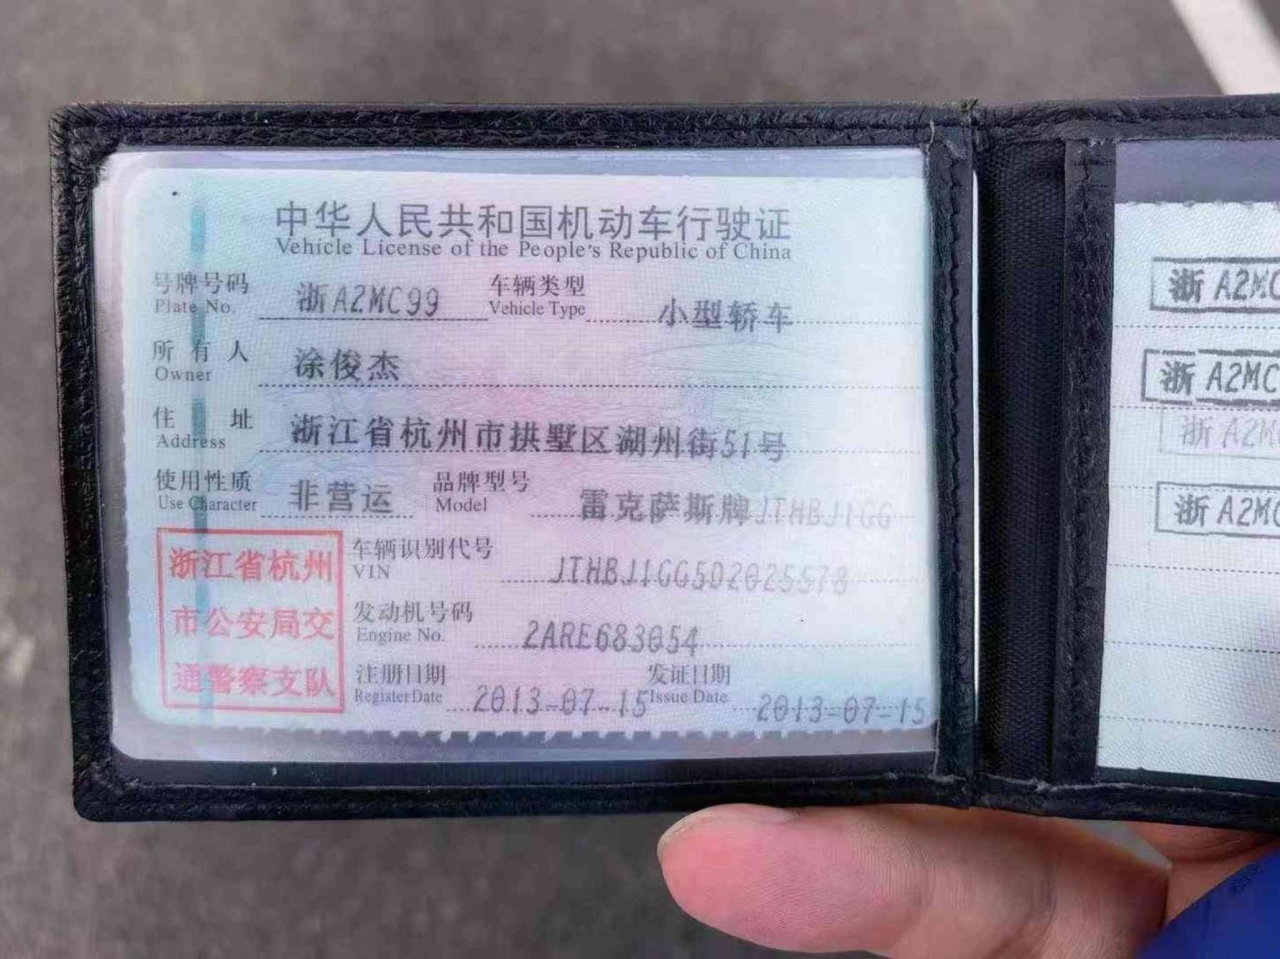 中华人民共和国机动车行驶证
Vehicle License of the People's Republic of China
号牌号码 浙A2MC99 车辆类型 小型轿车
Plate No. Vehicle Type
所有人 涂俊杰
Owner
住址 浙江省杭州市拱墅区湖州街51号
Address
使用性质 非营运 品牌型号 雷克萨斯牌JTHBJ1GG
Use Character Model
浙江省杭州市公安局交通警察支队
车辆识别代号 JTHBJ1GG5D2025578
VIN
发动机号码 2ARE683054
Engine No.
注册日期 2013-07-15 发证日期 2013-07-15
Register Date Issue Date
浙A2MC
浙A2MC
浙A2M
浙A2MC